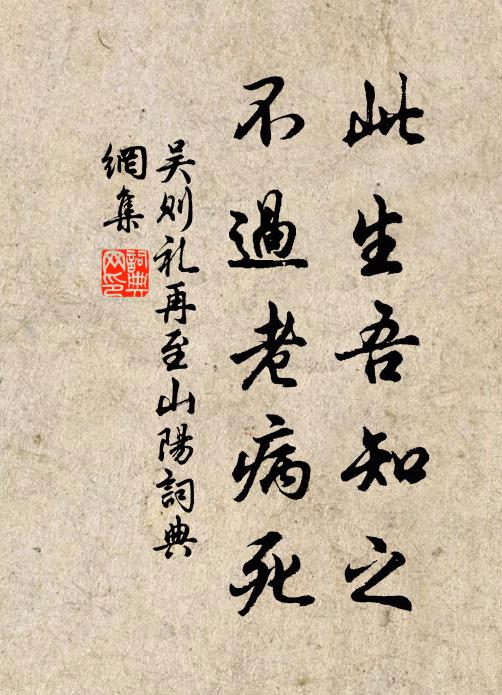 此生吾知之
不過老病死
吴则礼再至山陽詞典
網集
詞典
网印